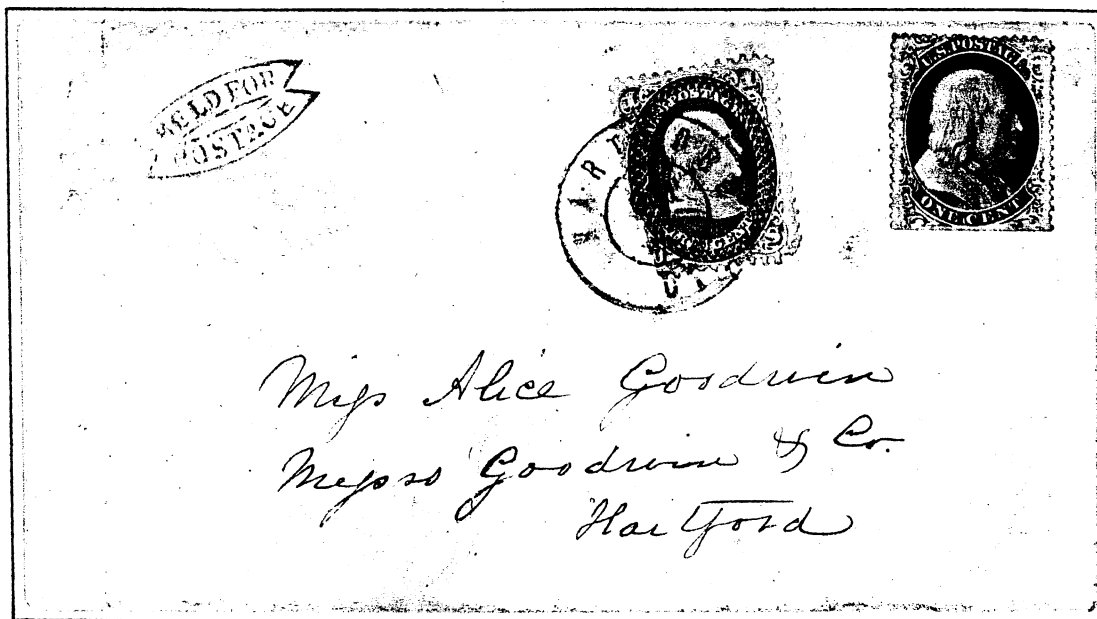 HELD FOR
POSTAGE
U.S. POSTAGE
ONE CENT
HART
Miss Alice Goodwin
Messrs Goodwin & Co.
Hartford